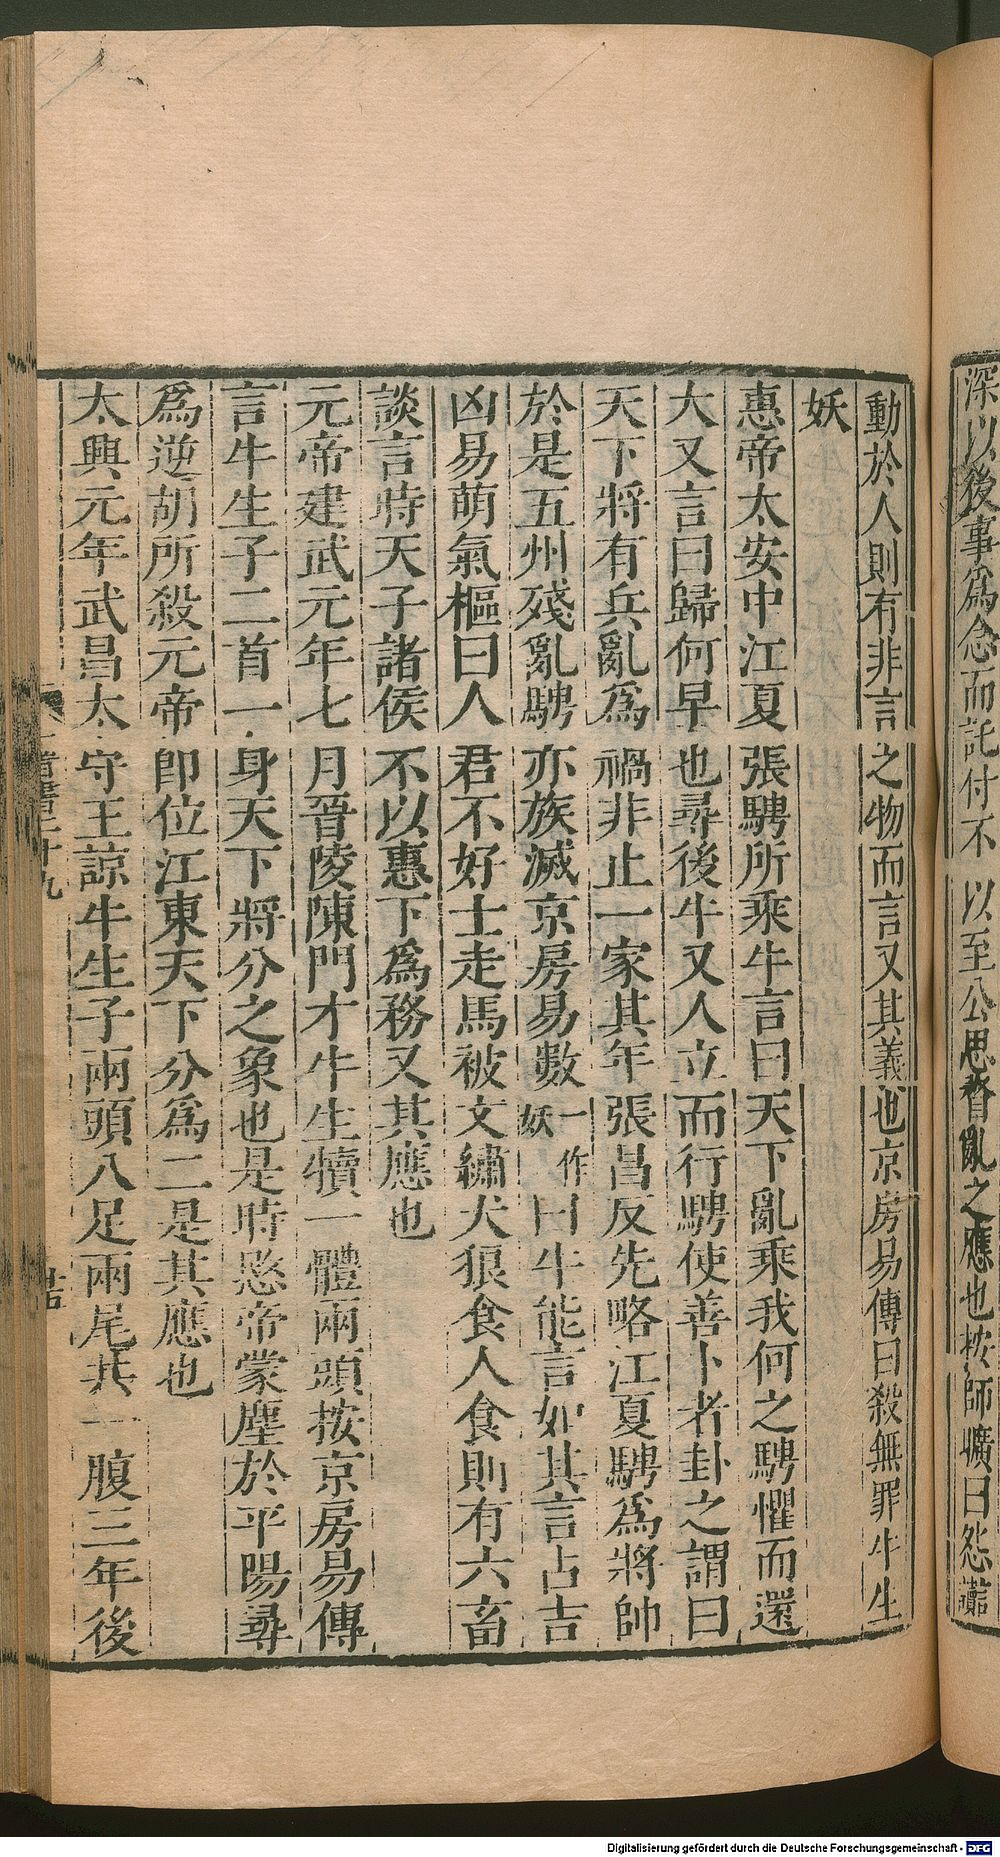 深以後事爲念而託付不以至公思瞀亂之應也按師曠曰怨讟
動於人則有非言之物而言又其義也京房易傳曰殺無罪牛生
妖
惠帝太安中江夏張騁所乘牛言曰天下亂乘我何之騁懼而還
大又言曰歸何早也尋後牛又人立而行騁使善卜者卦之謂曰
天下將有兵亂爲禍非止一家其年張昌反先略江夏騁爲將帥
於是五州殘亂騁亦族滅京房易數一作妖曰牛能言如其言占吉
凶易萌氣樞曰人君不好士走馬被文繡犬狼食人食則有六畜
談言時天子諸侯不以惠下爲務又其應也
元帝建武元年七月晉陵陳門才牛生犢一體兩頭按京房易傳
言牛生子二首一身天下將分之象也是時愍帝蒙塵於平陽尋
爲逆胡所殺元帝即位江東天下分爲二是其應也
太興元年武昌太守王諒牛生子兩頭八足兩尾共一腹三年後
晉書二十九
Digitalisierung gefördert durch die Deutsche Forschungsgemeinschaft - DFG